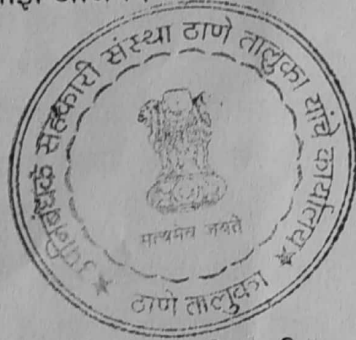 उपनिबंधक सहकारी संस्था ठाणे तालुका यांचे कार्यालय
सत्यमेव जयते
ठाणे तालुका